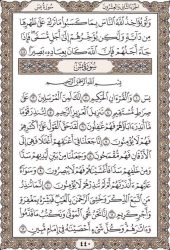 الجزء الثاني والعشرون
سورة يس
وَلَوْ يُؤَاخِذُ ٱللَّهُ ٱلنَّاسَ بِمَا كَسَبُوا۟ مَا تَرَكَ عَلَىٰ ظَهْرِهَا
مِن دَآبَّةٍ وَلَٰكِن يُؤَخِّرُهُمْ إِلَىٰٓ أَجَلٍ مُّسَمًّى ۖ فَإِذَا
جَآءَ أَجَلُهُمْ فَإِنَّ ٱللَّهَ كَانَ بِعِبَادِهِۦ بَصِيرًۢا ۝٤٥
سُورَةُ يسٓ
بِسْمِ ٱللَّهِ ٱلرَّحْمَٰنِ ٱلرَّحِيمِ
يسٓ ۝١ وَٱلْقُرْءَانِ ٱلْحَكِيمِ ۝٢ إِنَّكَ لَمِنَ ٱلْمُرْسَلِينَ ۝٣
عَلَىٰ صِرَٰطٍ مُّسْتَقِيمٍ ۝٤ تَنزِيلَ ٱلْعَزِيزِ ٱلرَّحِيمِ ۝٥ لِتُنذِرَ قَوْمًا
مَّآ أُنذِرَ ءَابَآؤُهُمْ فَهُمْ غَٰفِلُونَ ۝٦ لَقَدْ حَقَّ ٱلْقَوْلُ عَلَىٰٓ أَكْثَرِهِمْ
فَهُمْ لَا يُؤْمِنُونَ ۝٧ إِنَّا جَعَلْنَا فِىٓ أَعْنَٰقِهِمْ أَغْلَٰلًا فَهِىَ إِلَى
ٱلْأَذْقَانِ فَهُم مُّقْمَحُونَ ۝٨ وَجَعَلْنَا مِنۢ بَيْنِ أَيْدِيهِمْ سَدًّا
وَمِنْ خَلْفِهِمْ سَدًّا فَأَغْشَيْنَٰهُمْ فَهُمْ لَا يُبْصِرُونَ ۝٩ وَسَوَآءٌ
عَلَيْهِمْ ءَأَنذَرْتَهُمْ أَمْ لَمْ تُنذِرْهُمْ لَا يُؤْمِنُونَ ۝١٠ إِنَّمَا تُنذِرُ
مَنِ ٱتَّبَعَ ٱلذِّكْرَ وَخَشِىَ ٱلرَّحْمَٰنَ بِٱلْغَيْبِ ۖ فَبَشِّرْهُ بِمَغْفِرَةٍ
وَأَجْرٍ كَرِيمٍ ۝١١ إِنَّا نَحْنُ نُحْىِ ٱلْمَوْتَىٰ وَنَكْتُبُ مَا قَدَّمُوا۟
وَءَاثَٰرَهُمْ ۚ وَكُلَّ شَىْءٍ أَحْصَيْنَٰهُ فِىٓ إِمَامٍ مُّبِينٍ ۝١٢
٤٤٠